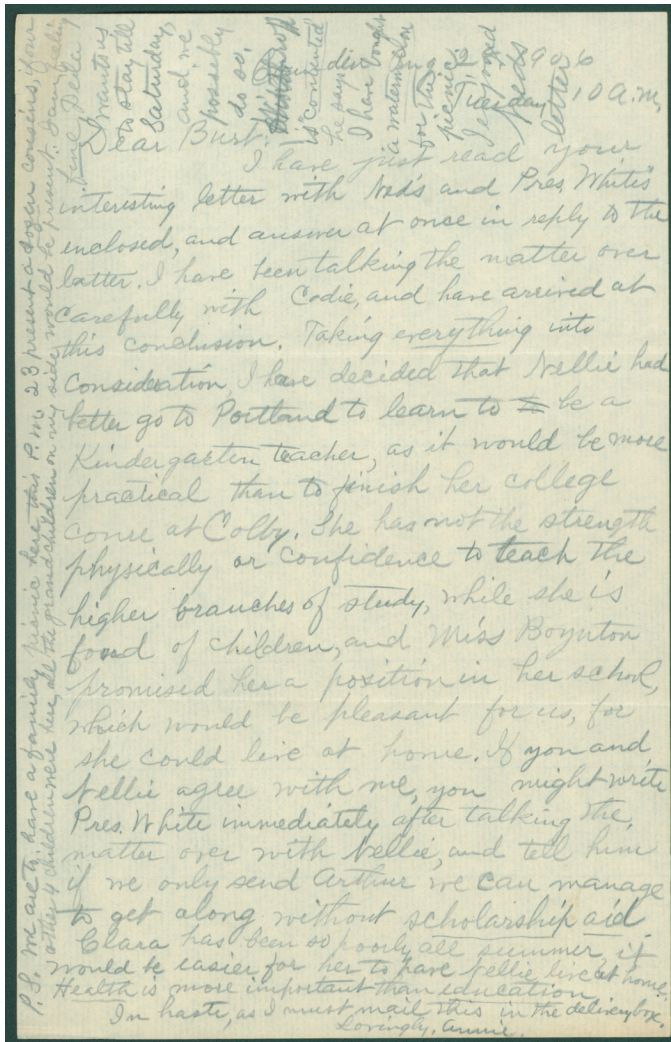 Tuesday, 10 a.m.
Dear Burt:
I have just read your
interesting letter with Ned's and Pres. White's
enclosed, and answer at once in reply to the
latter. I have been talking the matter over
carefully with Codie, and have arrived at
this conclusion. Taking everything into
Consideration, I have decided that Nellie had
better go to Portland to learn to be a
Kindergarten teacher, as it would be more
practical than to finish her college
at Colby. She has not the strength
physically or confidence to teach the
higher branches of study, while she is
fond of children, and Miss Boynton
promised her a position in her school,
which would be pleasant for us, for
she could live at home. If you and
Nellie agree with me, you might write
Pres. White immediately after talking the
matter over with Nellie, and tell him
if we only send Arthur we can manage
to get along without scholarship aid
Clara has been so poorly all summer, it
would be easier for her to have Nellie live at home.
Health is more important than education
In haste, as I must mail this in the delivery box.
Lovingly, Annie.
P.S. We are to have a family picnic here this P.M. 23 present a dozen cousins, if our
other 4 children were here, all the grandchildren on my side would be present.
wants us
to stay till
Saturday,
and we
possibly
do so.
is contented
he says.
I have bought
a watermelon
for this
picnic.
I enjoyed
Ned's
letter